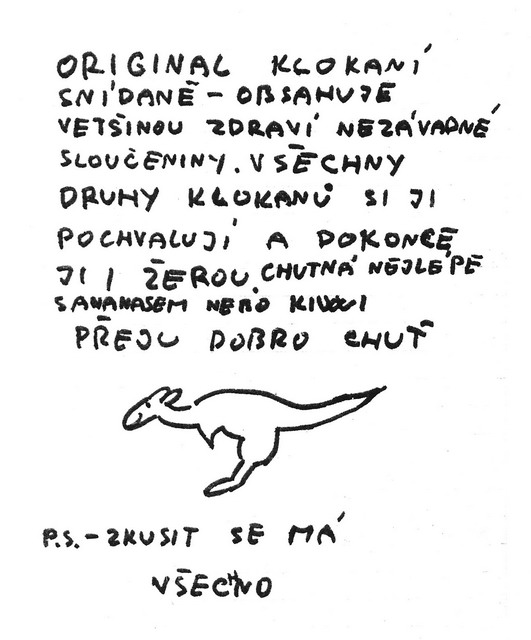 ORIGINAL KLOKANÍ
SNÍDANĚ - OBSAHUJE
VETŠINOU ZDRAVÍ NEZÁVADNÉ
SLOUČENINY. VŠECHNY
DRUHY KLOKANŮ SI JI
POCHVALUJÍ A DOKONCE
JI I ŽEROU. CHUTNÁ NEJLÉPE
S ANANASEM NEBO KIWI
PŘEJU DOBRO CHUŤ
P.S. - ZKUSIT SE MÁ
VŠECHNO